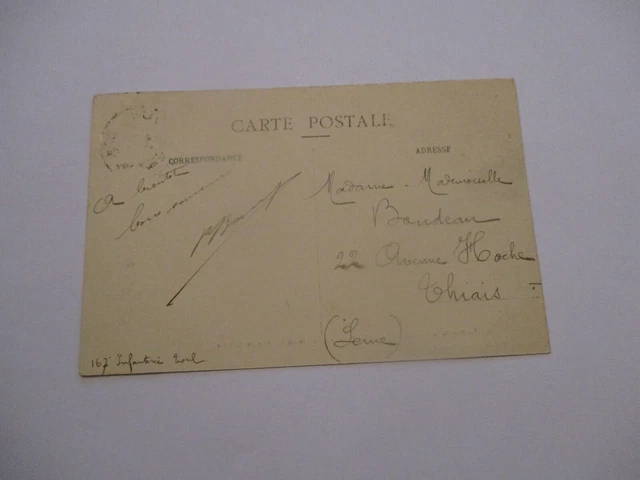 CARTE POSTALE
CORRESPONDANCE
ADRESSE
A bientôt
bons
Madame - Mademoiselle
Boudeau
22 Avenue Hoche
Thiais
(Seine)
167e Infanterie Toul